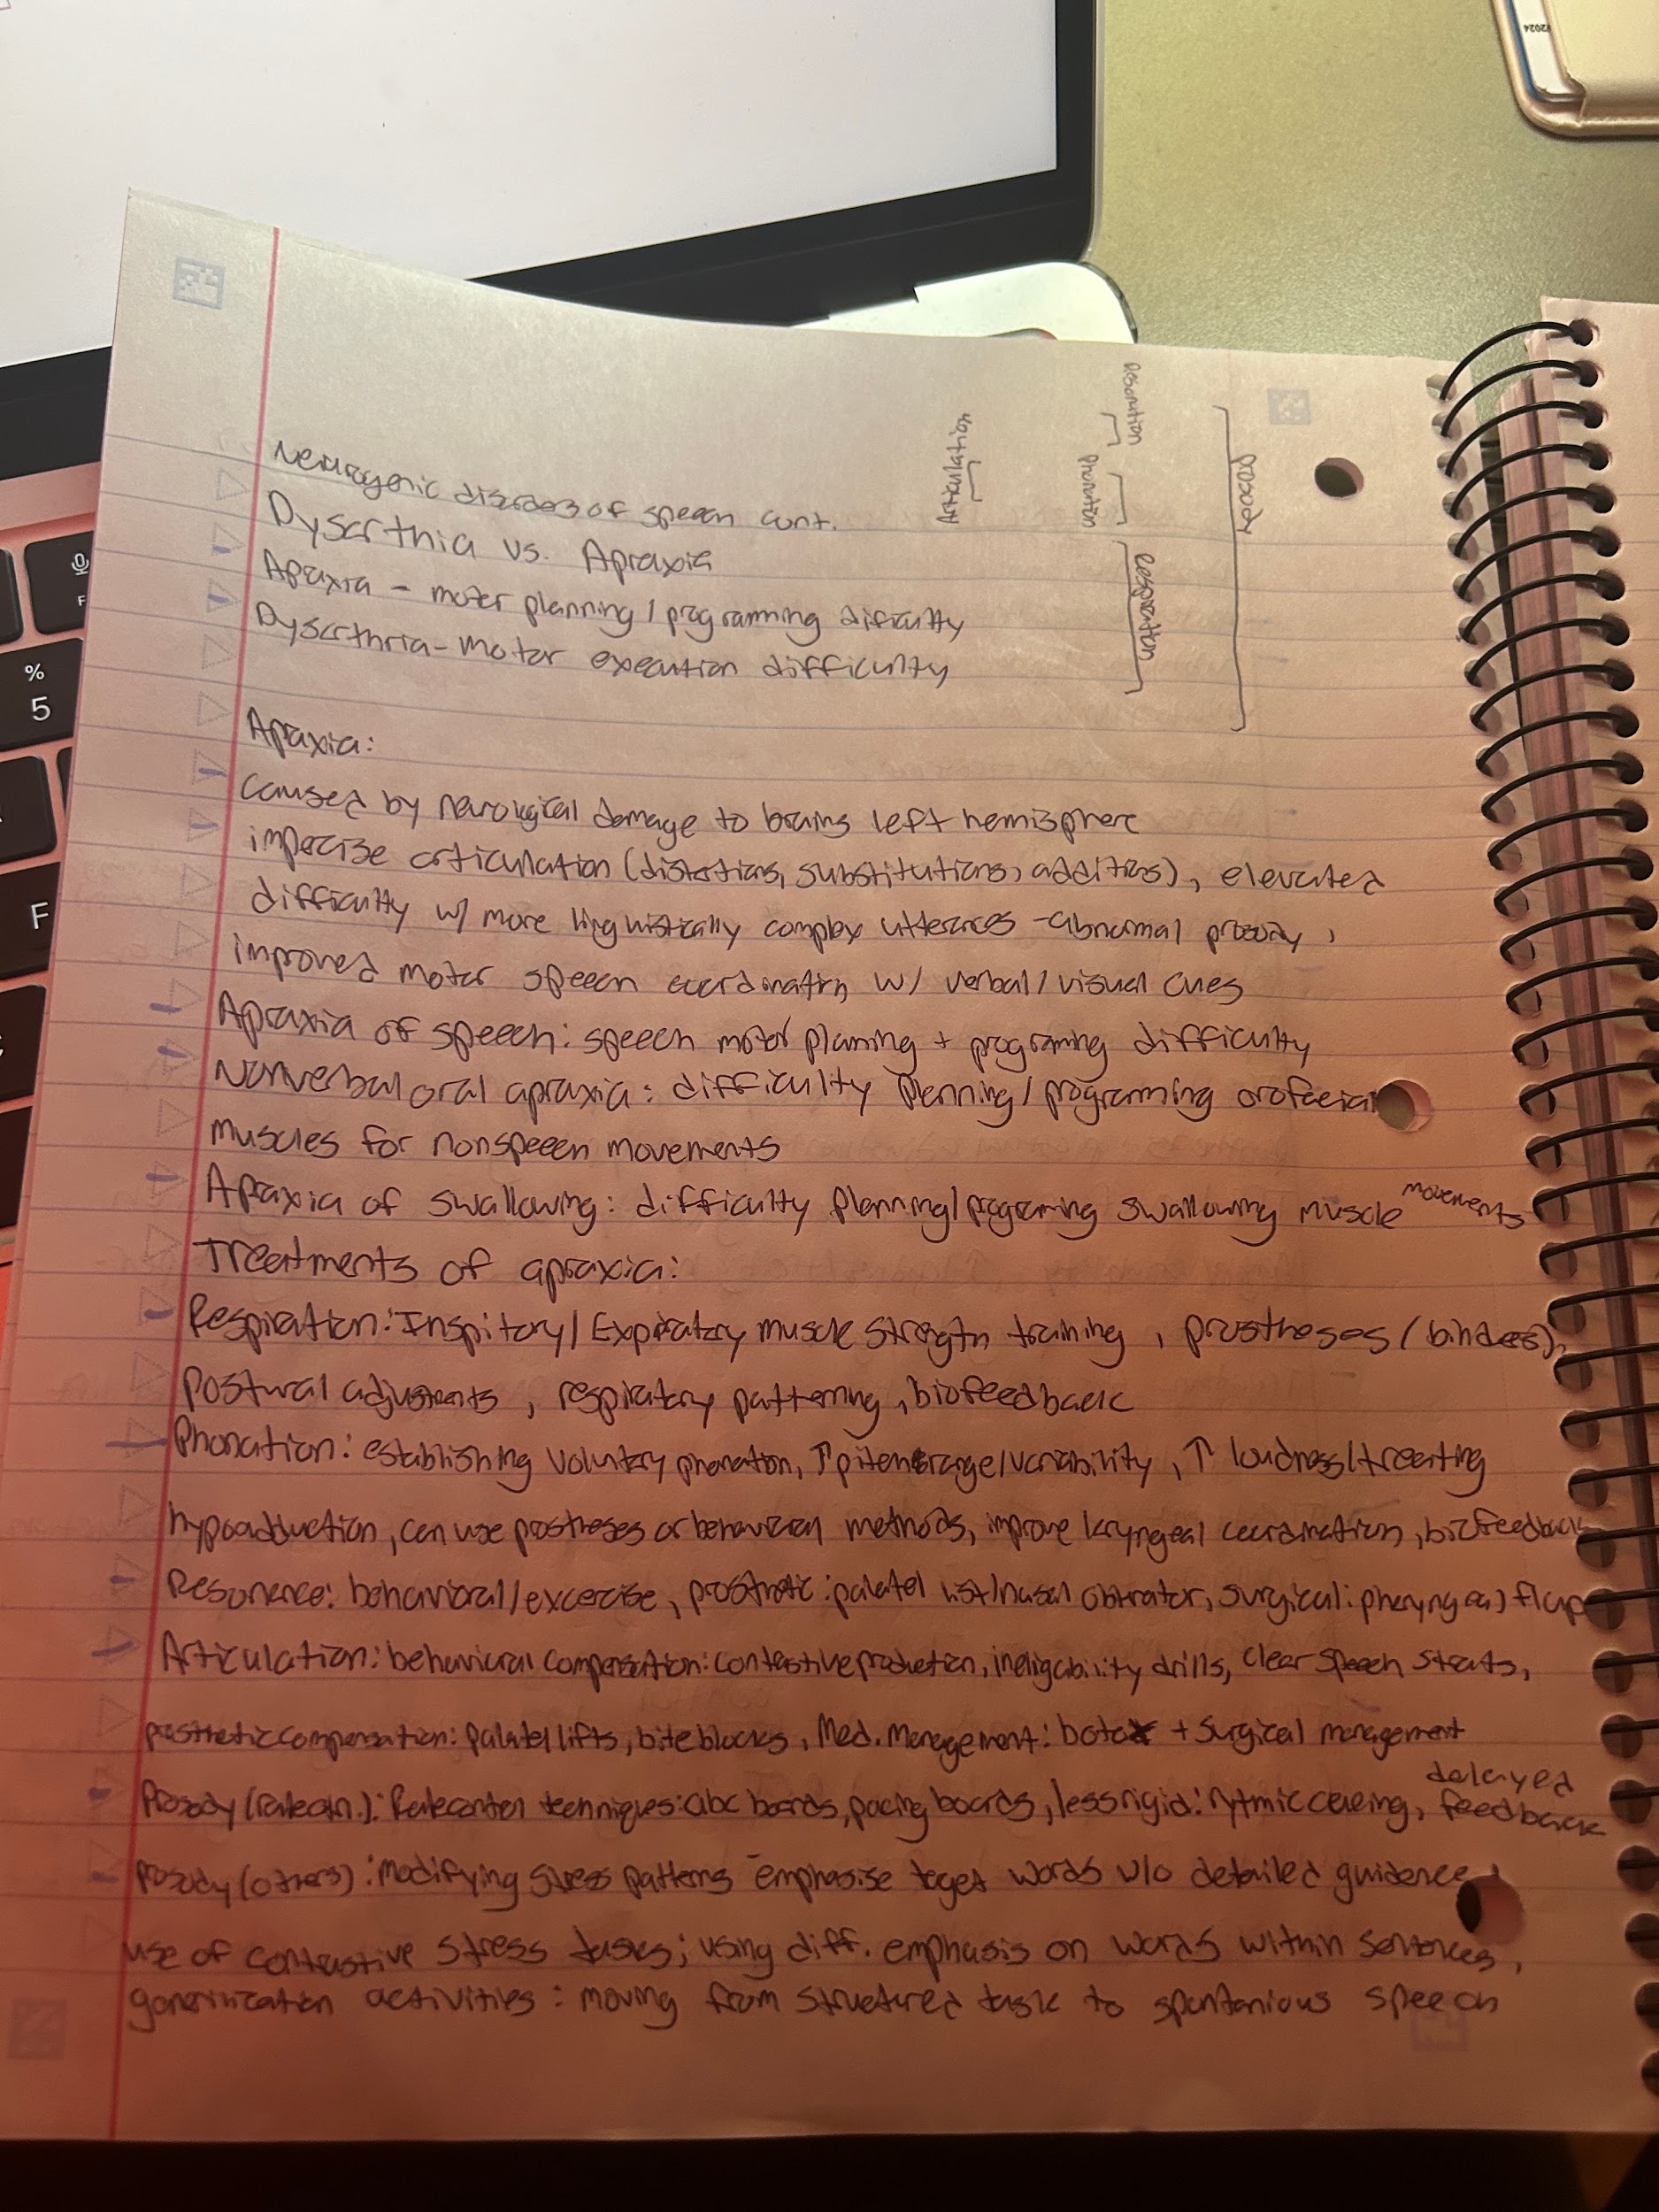 Neurogenic disorders of speech cont.
Dysarthia vs. Apraxia
Apraxia - motor planning / programming dificulty
Dysarthria - Motor execution difficulty
Articulation
Resonation
Phonation
Respiration
Prosody
Apraxia:
Caused by neurological damage to brains left hemisphere
imprecise articulation (distortions, substitutions, additions), elevated
difficulty w/ more linguistically complex utterances - abnormal prosody,
improved motor speech coordination w/ verbal / visual cues
Apraxia of speech: speech motor planning + programing difficulty
Nonverbal oral apraxia: difficulty planning / programming orofacial
muscles for nonspeech movements
Apraxia of swallowing: difficulty planning/programing swallowing muscle movements
Treatments of apraxia:
Respiration: Inspitory / Expiratory muscle strength training, prostheses (binders),
Postural adjustments, respiratory patterning, biofeedback
Phonation: establishing voluntary phonation, ↑ pitch range/variability, ↑ loudness/treating
hypoadduction, can use prostheses or behavioral methods, improve laryngeal coordination, biofeedback
Resonence: behavioral/excercise, prosthetic: palatel lift/nasal obtrator, surgical: pharyngeal flap
Articulation: behavioral compensation: contrastive production, ineligability drills, clear speech strats,
prosthetic compensation: palatel lifts, bite blocks, Med. Management: botox + surgical management
Prosody (): Rate control techniques: abc boards, pacing boards, less rigid: rytmic cueing, delayed feedback
prosody (others): modifying stress patterns - emphasise taget words w/o detailed guidence,
use of contrastive stress tasks; using diff. emphasis on words within sentences,
generilization activities: moving from structured task to spontanious speech
% 5
F
2024